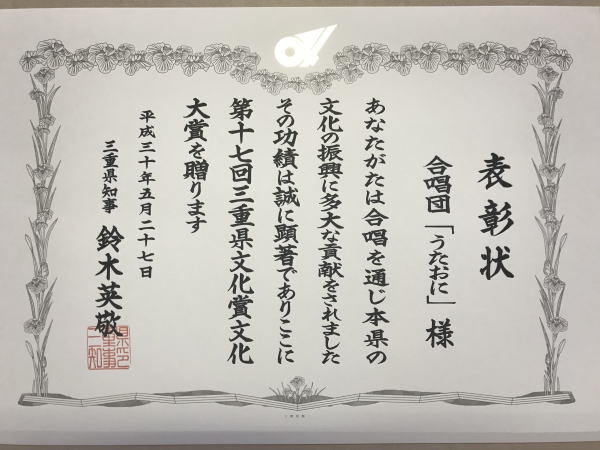 表彰状
合唱団「うたおに」様
あなたがたは合唱を通じ本県の
文化の振興に多大な貢献をされました
その功績は誠に顕著でありここに
第十七回三重県文化賞文化
大賞を贈ります
平成三十年五月二十七日
三重県知事 鈴木英敬